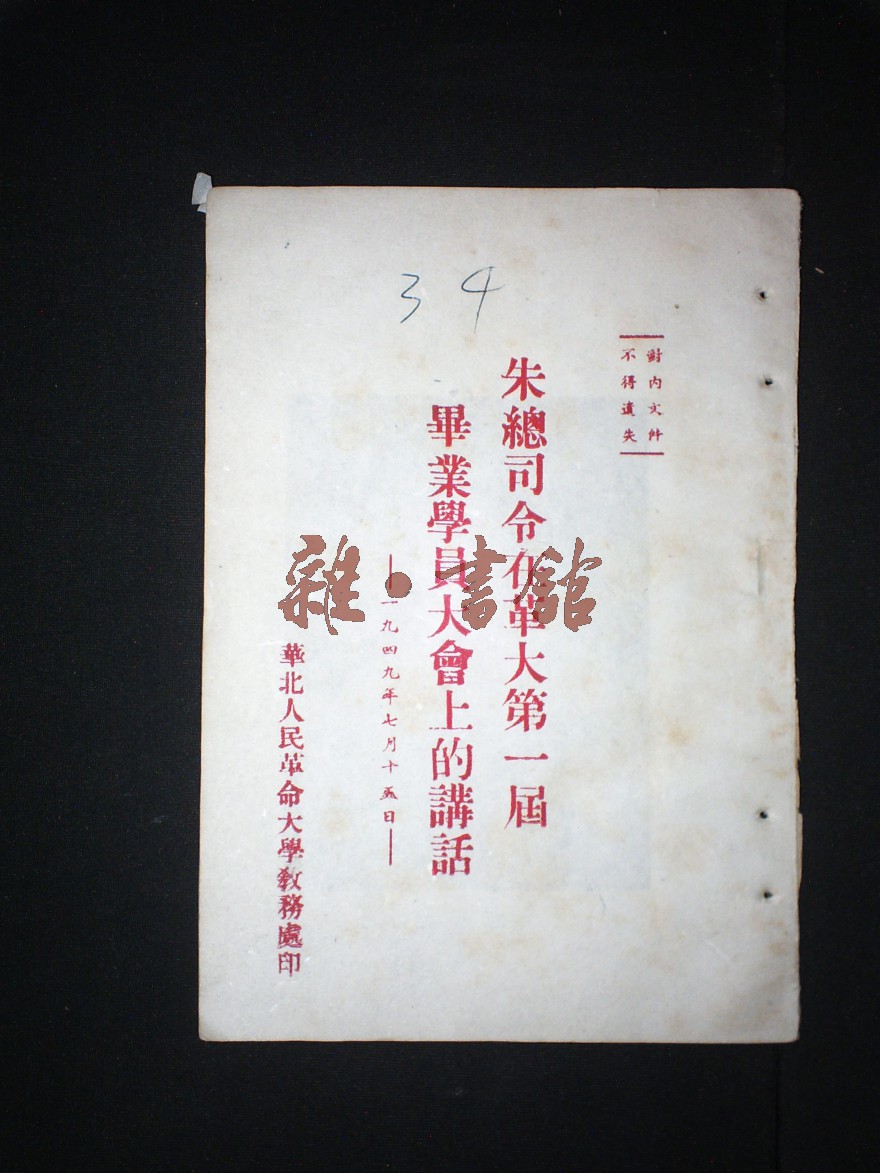 34
對內文件
不得遺失
朱總司令在革大第一屆
畢業學員大會上的講話
—一九四九年七月十五日—
華北人民革命大學教務處印
雜·書館